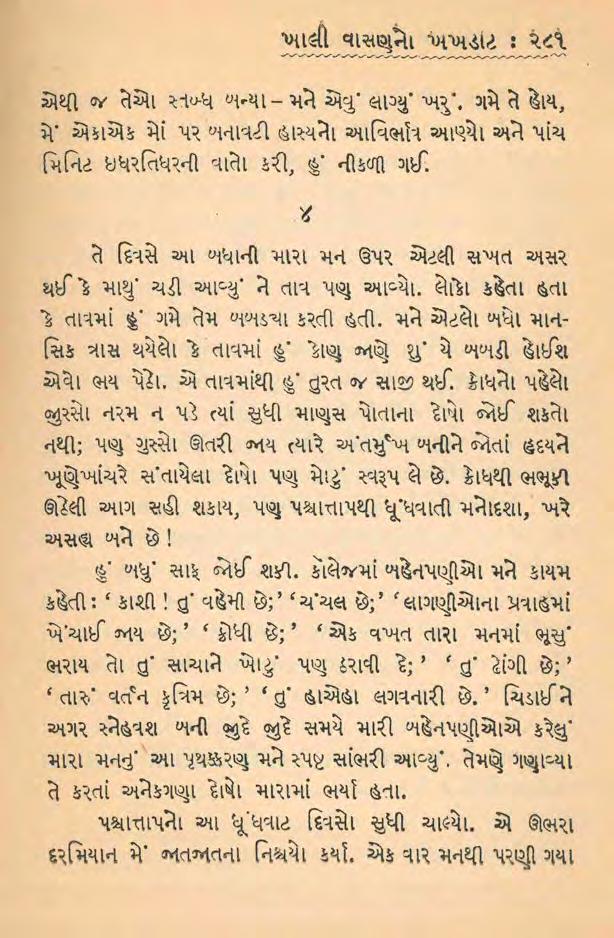 ખાલી વાસણનો ખખડાટ : ૨૮૧
એથી જ તેઓ સ્તબ્ધ બન્યા – મને એવું લાગ્યું ખરું. ગમે તે હોય,
મેં એકાએક મોં પર બનાવટી હાસ્યનો આવિર્ભાવ આણ્યો અને પાંચ
મિનિટ ઇધરતિધરની વાતો કરી, હું નીકળી ગઈ.
૪
તે દિવસે આ બધાની મારા મન ઉપર એટલી સખત અસર
થઈ કે માથું ચડી આવ્યું ને તાવ પણ આવ્યો. લોકો કહેતા હતા
કે તાવમાં હું ગમે તેમ બબડ્યા કરતી હતી. મને એટલો બધો માન-
સિક ત્રાસ થયેલો કે તાવમાં હું કોણ જાણે શું યે બબડી હોઈશ
એવો ભય પેઠો. એ તાવમાંથી હું તુરત જ સાજી થઈ. ક્રોધનો પહેલો
જુસ્સો નરમ ન પડે ત્યાં સુધી માણુસ પોતાના દોષો જોઈ શકતો
નથી; પણ ગુસ્સો ઊતરી જાય ત્યારે અંતર્મુખ બનીને જોતાં હૃદયને
ખૂણેખાંચરે સંતાયેલા દોષો પણ મોટું સ્વરૂપ લે છે. ક્રોધથી ભભૂકી
ઊઠેલી આગ સહી શકાય, પણ પશ્ચાત્તાપથી ધૂંધવાતી મનોદશા, ખરે
અસહ્ય બને છે !
હું બધું સાફ જોઈ શકી. કૉલેજમાં બહેનપણીઓ મને કાયમ
કહેતી : ‘ કાશી ! તું વહેમી છે;’ ‘ ચંચલ છે;’ ‘ લાગણીઓના પ્રવાહમાં
ખેંચાઈ જાય છે;’ ‘ ક્રોધી છે;’ ‘ એક વખત તારા મનમાં ભૂસું
ભરાય તો તું સાચાને ખોટું પણ ઠરાવી દે;’ ‘ તું ઢોંગી છે;’
‘ તારું વર્તન કૃત્રિમ છે;’ ‘ તું હાએહા લગવનારી છે.’ ચિડાઈને
અગર સ્નેહવશ બની જુદે જુદે સમયે મારી બહેનપણીઓએ કરેલું
મારા મનનું આ પૃથક્કરણ મને સ્પષ્ટ સાંભરી આવ્યું. તેમણે ગણાવ્યા
તે કરતાં અનેકગણા દોષો મારામાં ભર્યા હતા.
પશ્ચાત્તાપનો આ ધૂંધવાટ દિવસો સુધી ચાલ્યો. એ ઊભરા
દરમિયાન મેં જાતજાતના નિશ્ચયો કર્યા. એક વાર મનથી પરણી ગયા